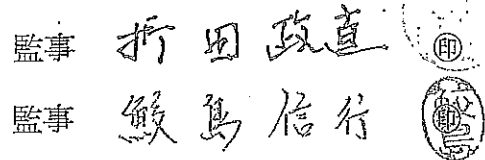 監事 折田政直 ㊞
監事 鮫島信行 ㊞